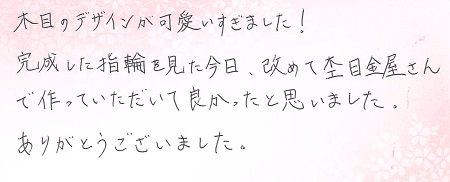 木目のデザインが可愛いすぎました！
完成した指輪を見た今日、改めて杢目金屋さん
で作っていただいて良かったと思いました。
ありがとうございました。